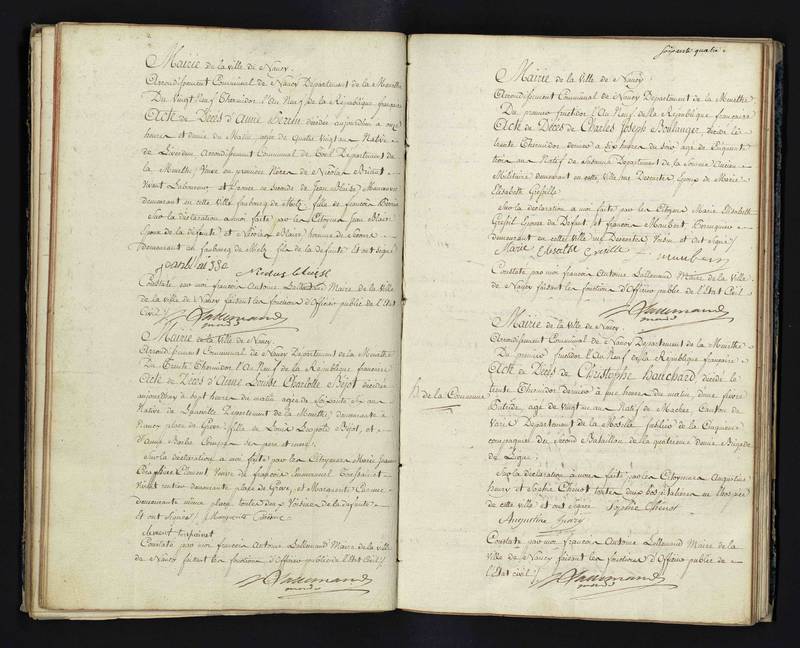 Mairie de la ville de Nancy.
Arrondissement Communal de Nancy Département de la Meurthe
Du Vingt Neuf Thermidor l'An Neuf de la République française
Acte de Décès d'Anne décédée aujourd'hui a onze
heures et demie du Matin, agée de quatre vingt un Native
de Liverdun Arrondissement Communal de Toul Département de
la Meurthe, Veuve en premiere Noces de Nicolas
vivant Laboureur, et en seconde de Jean
demeurant en cette ville faubourg de Metz, fille de francois
Sur la déclaration a moi faite par les Citoyens Jean
de la defunte et Nicolas
demeurant en faubourg de Metz, fils de la defunte Et ont signé
Nicolas
Constaté par moi francois Antoine Lallemand Maire de la Ville
de la ville de Nancy faisant les fonctions d'Officier public de l'Etat
Civil./
Lallemand
maire
Mairie de la Ville de Nancy.
Arrondissement Communal de Nancy Département de la Meurthe
Du Trente Thermidor l'An Neuf de la République française
Acte de Décès d'Anne Louise Charlotte Béjot décédée
aujourd'huy a sept heures du matin agée de Soixante et un
Native de Département de la Meurthe, demeurante à
Nancy place de Grève, fille de Louis Leopold Béjot, et
d'Anne Barbe ses pere et mere./
Sur la déclaration a moi faite par les Citoyennes Marie Jeanne
Clement Veuve de françois Emmanuel
Vivant rentier demeurante place de Grève, et Marguerite
demeurante même place, toutes deux Voisines de la defunte
Et ont Signés./ Marguerite
clement
Constaté par moi francois Antoine Lallemand Maire de la ville
de Nancy faisant les fonctions d'Officier public de l'Etat Civil./
Lallemand
maire
soixante quatre
Mairie de la Ville de Nancy.
Arrondissement Communal de Nancy Département de la Meurthe
Du premier fructidor l'An Neuf de la République française
Acte de Décès de Charles Joseph Boulanger, décédé le
trente Thermidor dernier à six heures du soir, agé de Cinquante
trois ans Natif de Département de la Somme Ancien
Militaire demeurant en cette Ville rue Descartes, Epoux de Marie
Elisabeth
Sur la déclaration a moi faite par les Citoyens Marie Elisabeth
Epouse du Defunt et francois Maubert
demeurant en cette Ville rue Descartes Voisin et ont signé./
Marie
Constaté par moi francois Antoine Lallemand Maire de la Ville
de Nancy faisant les fonctions d'Officier public de l'Etat Civil
Lallemand
maire
Mairie de la Ville de Nancy.
Arrondissement Communal de Nancy Département de la Meurthe
Du premier fructidor l'An Neuf de la République française
Acte de Décès de Christophe Hauchard, décédé le
trente Thermidor dernier à une heure du matin, d'une fièvre
Putride, agé de Vingt un ans Natif de Canton de
Département de la Moselle fusilier de la Cinquieme
compagnie du Second Bataillon de la quatrieme demie Brigade
de Ligne.
de la Commune
Sur la déclaration à nous faite par les Citoyennes Augustine
henry et Sophie Thenot toutes deux hospitalieres en l'hospice
de cette ville et ont signé Sophie Thenot
Augustine henry
Constaté par moi francois Antoine Lallemand Maire de la
Ville de Nancy faisant les fonctions d'Officier public de
l'Etat civil./
Lallemand
maire